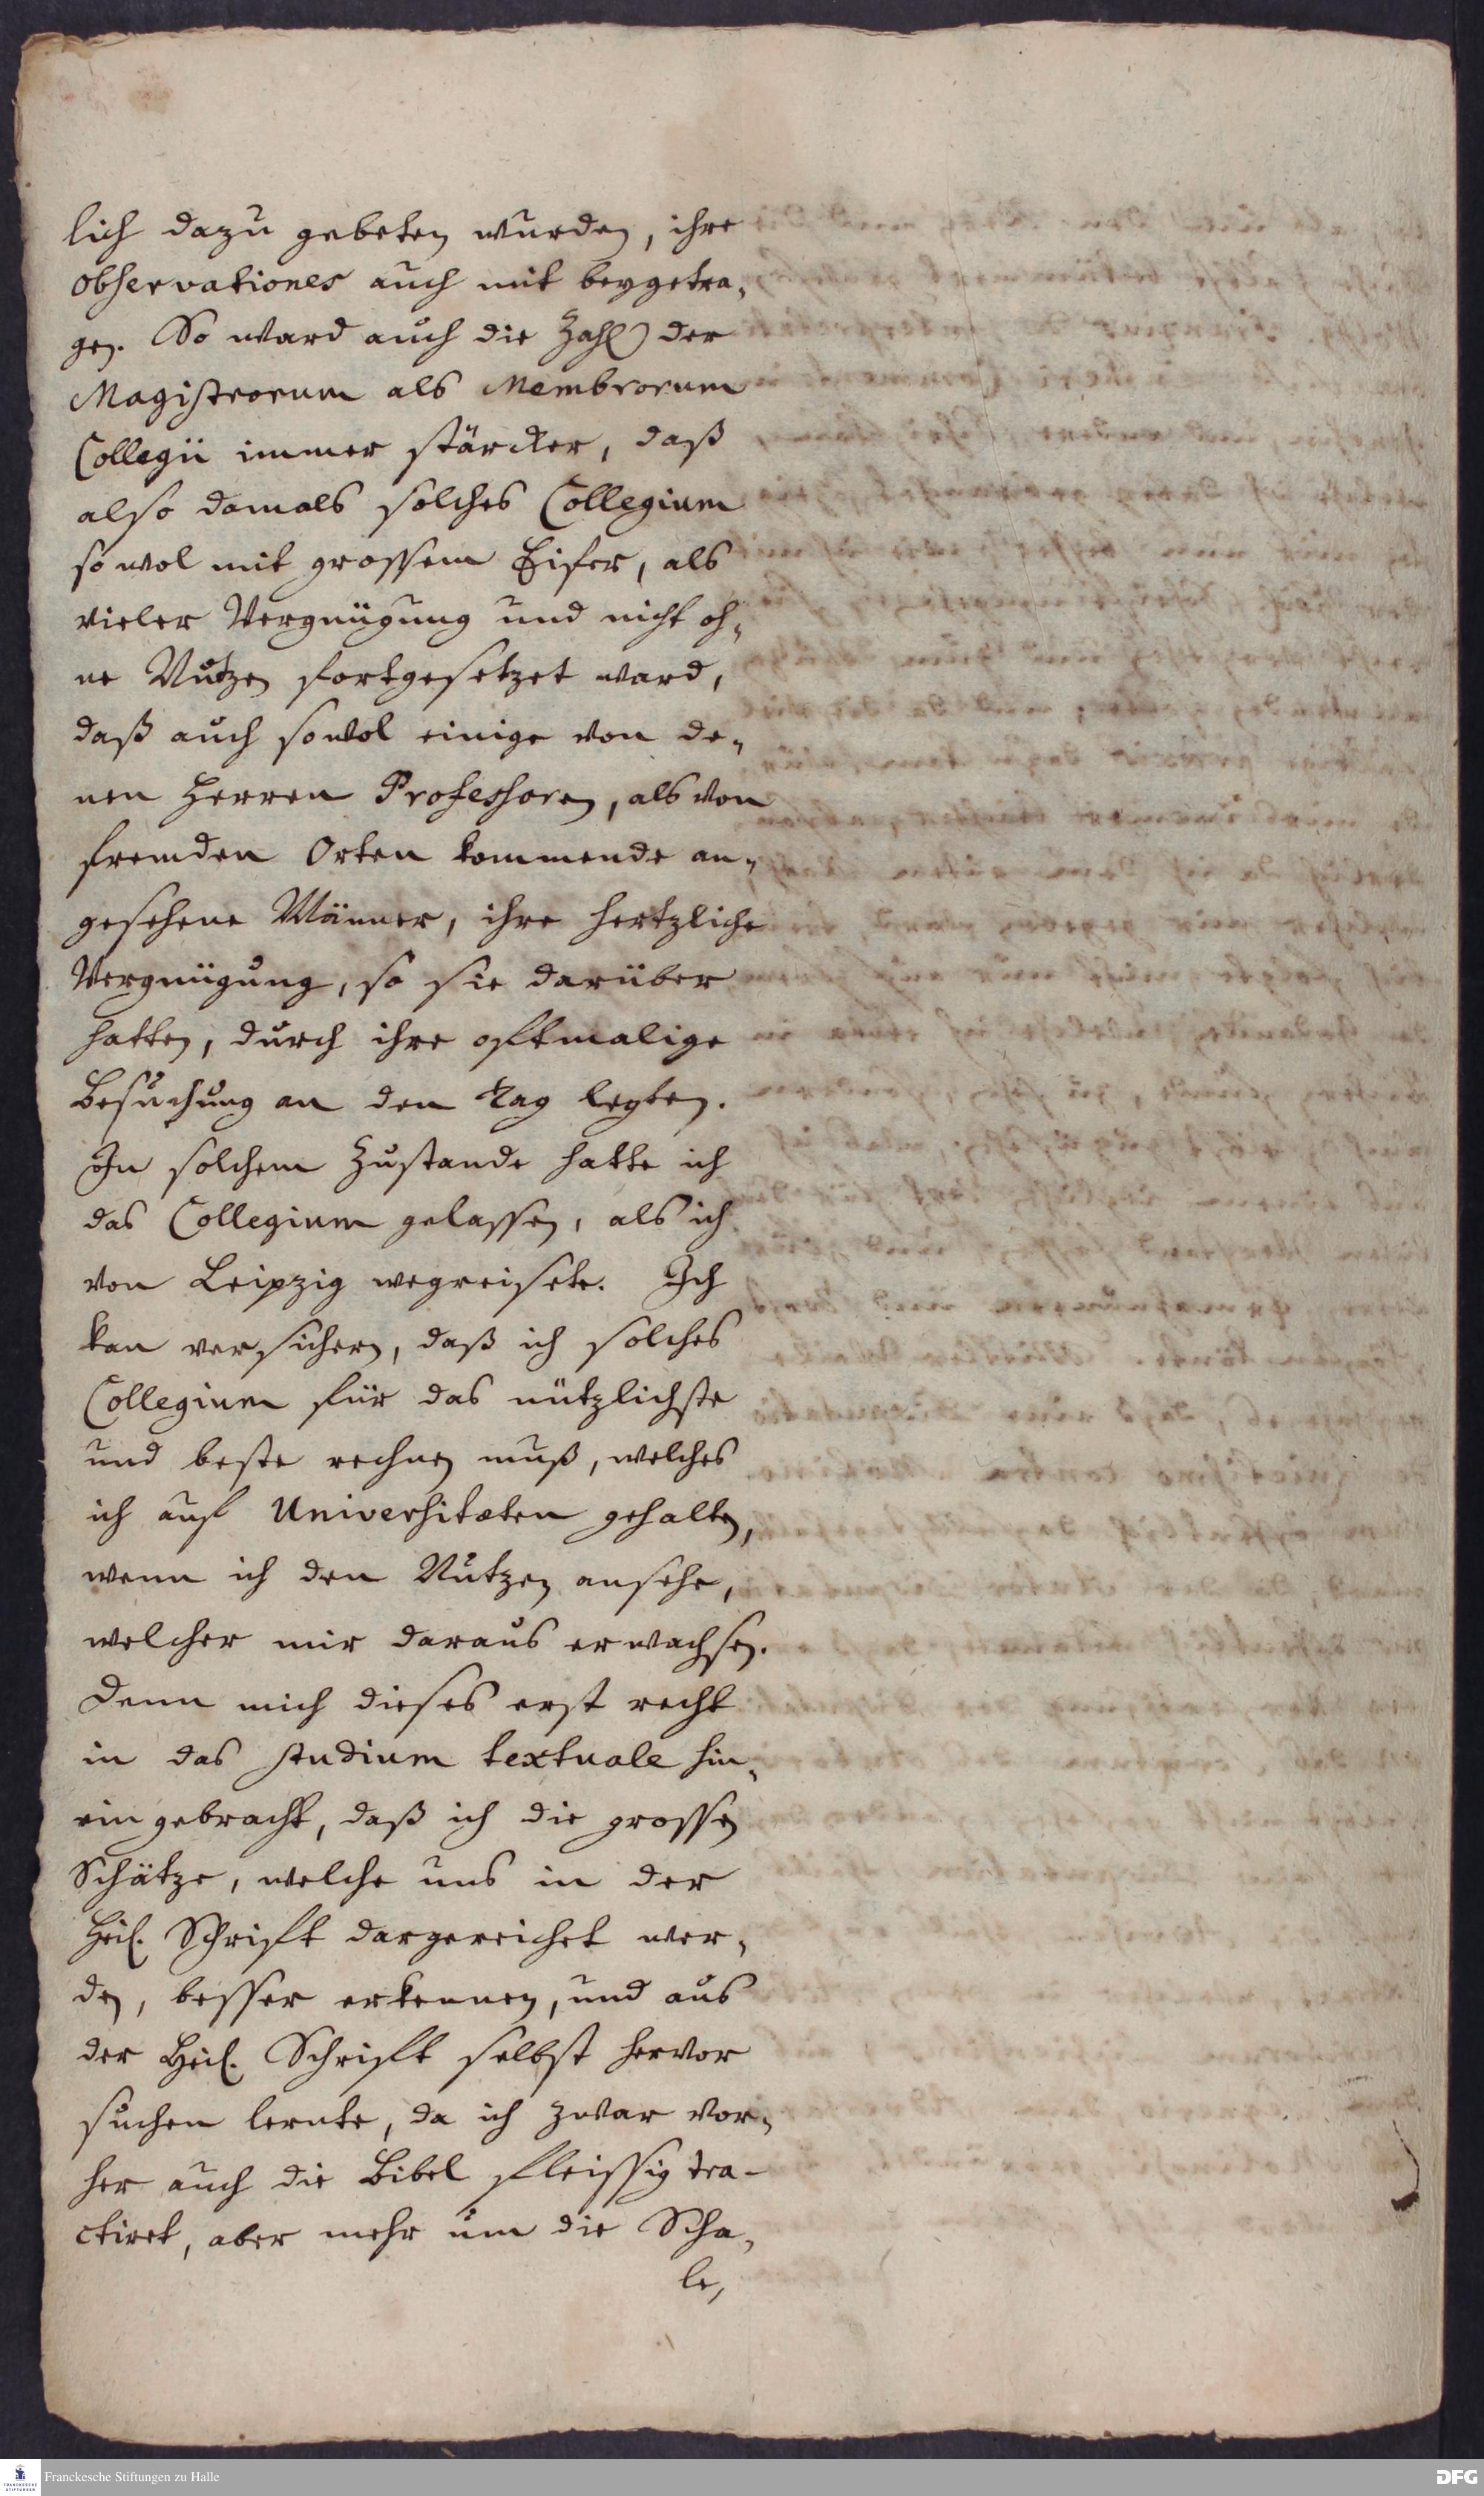 lich dazu gebeten wurden, ihre
observationes auch mit beygetra„
gen. So ward auch die Zahl der
Magistrorum als Membrorum
Collegii immer stärcker, daß
also damals solches Collegium
so wol mit grossem Eifer, als
vieler Vergnügung und nicht oh„
ne Nutzen fortgesetzet ward,
daß auch sowol einige von de„
nen Herren Professoren, als von
fremden Orten kommende an„
gesehene Männer, ihre hertzliche
Vergnügung, so sie darüber
hatten, durch ihre oftmalige
Besuchung an den Tag legten.
In solchem Zustande hatte ich
das Collegium gelassen, als ich
von Leipzig wegreisete. Ich
kan versichern, daß ich solches
Collegium für das nützlichste
und beste rechnen muß, welches
ich auf Universitæten gehalten,
wenn ich den Nutzen ansehe,
welcher mir daraus erwachsen.
Denn mich dieses erst recht
in das studium textuale hin„
ein gebracht, daß ich die grossen
Schätze, welche uns in der
Heil. Schrift dargereichet wer„
den, besser erkennen, und aus
der Heil. Schrift selbst hervor
suchen lernte, da ich zwar vor„
her auch die Bibel fleissig tra-
ctiret, aber mehr um die Scha„
le,
Franckesche Stiftungen zu Halle
DFG